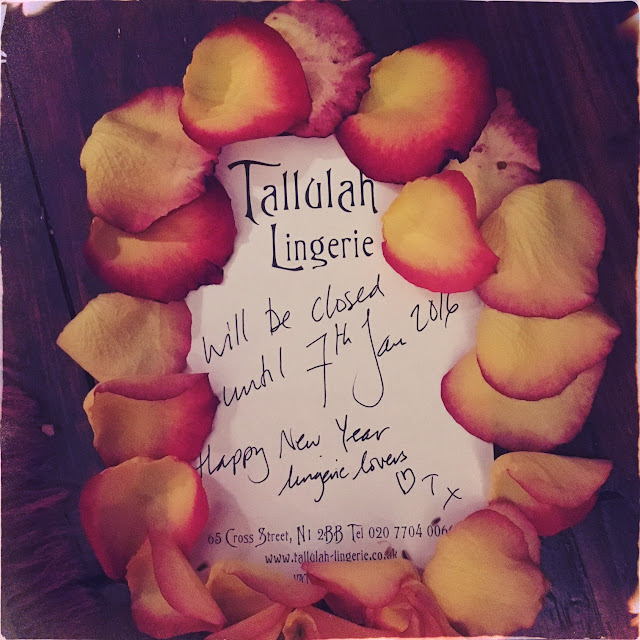 Tallulah
Lingerie
will be closed
until 7th Jan 2016
Happy New Year
lingerie lovers
♡ T x
65 Cross Street, N1 2BB Tel 020 7704 006
www.tallulah-lingerie.co.uk